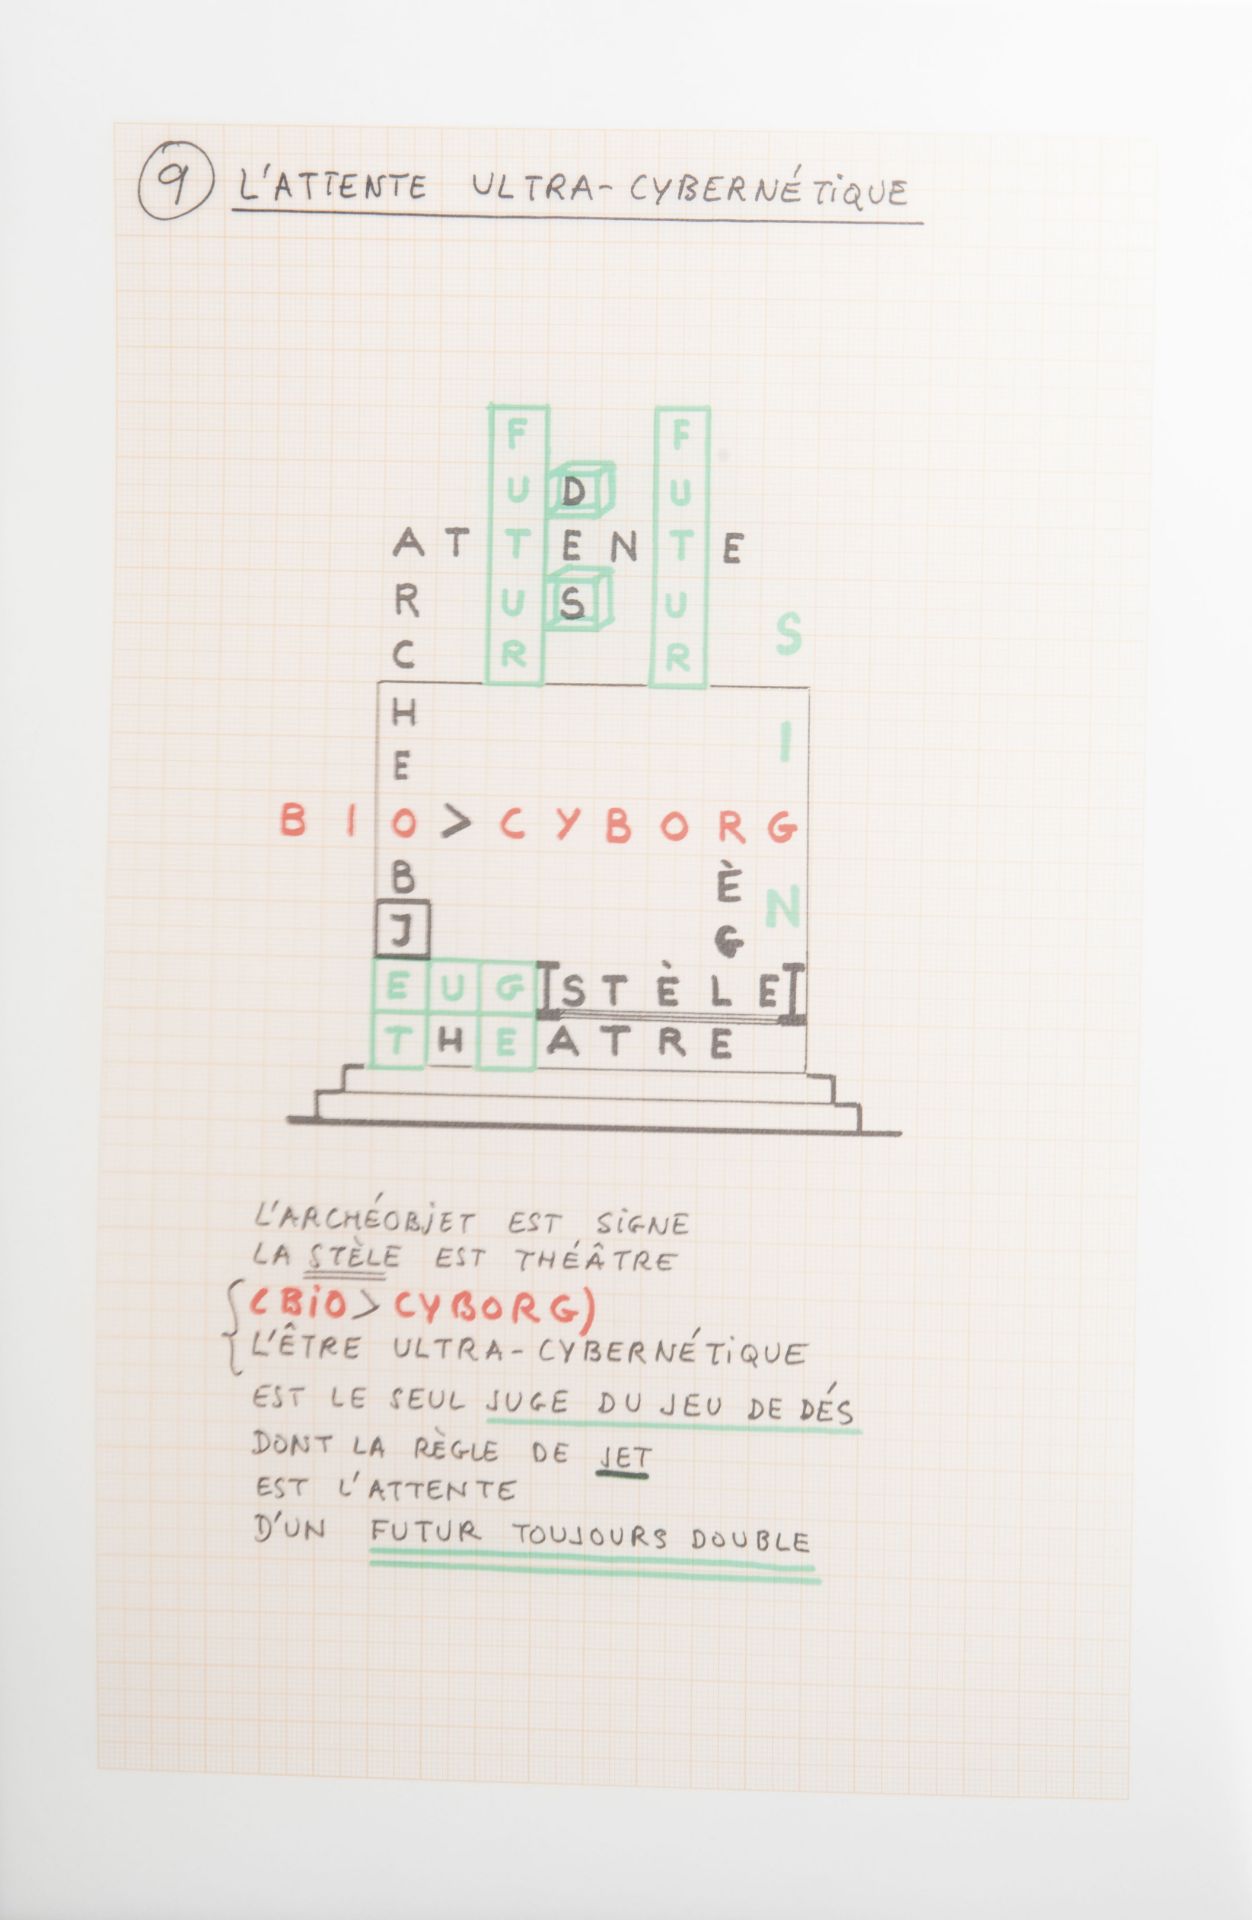 9 L'ATTENTE ULTRA-CYBERNÉTIQUE
F F
U D U
A T T E N T E
R U S U
C R R S
H
E I
B I O > C Y B O R G
B È
J G N
E U G S T È L E
T H E A T R E
L'ARCHÉOBJET EST SIGNE
LA STÈLE EST THÉÂTRE
(BIO > CYBORG)
L'ÊTRE ULTRA-CYBERNÉTIQUE
EST LE SEUL JUGE DU JEU DE DÉS
DONT LA RÈGLE DE JET
EST L'ATTENTE
D'UN FUTUR TOUJOURS DOUBLE